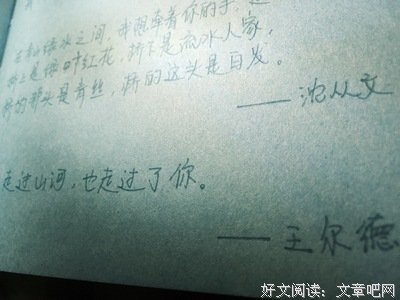 在青山绿水之间，我想牵着你的手，走
桥上是绿叶红花，桥下是流水人家，
桥的那头是青丝，桥的这头是白发。
——沈从文
走过山河，也走过了你。
——王尔德
好文阅读：文章吧网